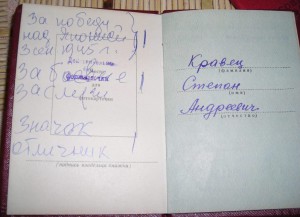 За победу
над Японией
3 сен 1945 г.
За боевые
заслуги
Значок
отличник
Кравец
(фамилия)
Степан
(имя)
Андреевич
(отчество)